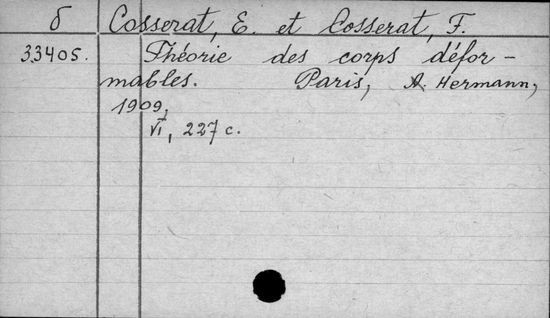 б Cosserat, E. et Cosserat, F.
33405. Théorie des corps défor-
mables. Paris, A. Hermann,
1909,
VI, 227 c.